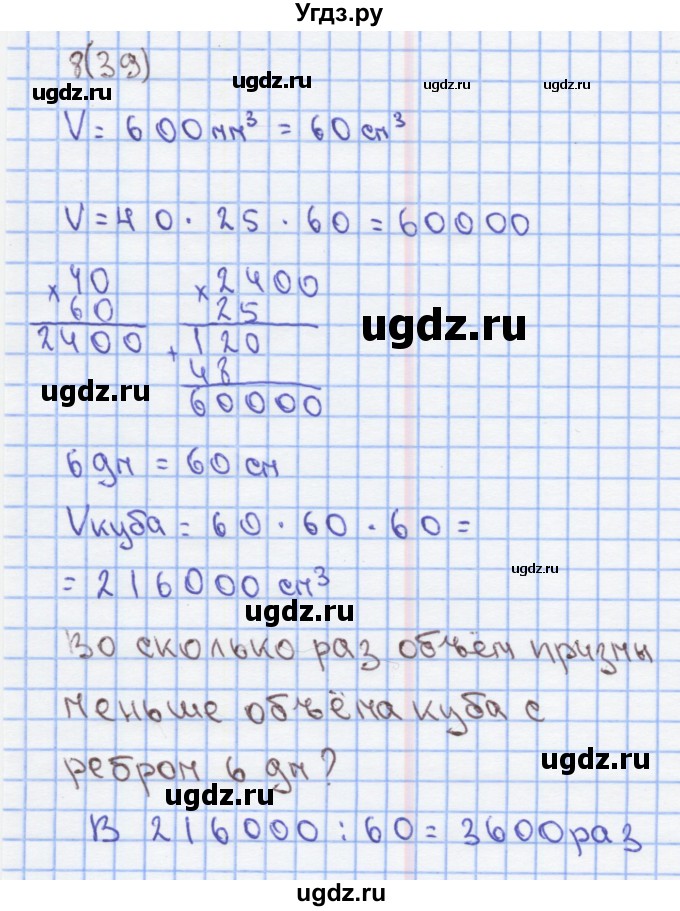 Угдз.ру
8(39)
ugdz.ru ugdz.ru ugdz.ru ugdz.ru
V = 600 мм³ = 60 см³
V = 40 · 25 · 60 = 60000
× 40 × 2400
60 25
2400 + 120 ugdz.ru
48
ugdz.ru
60000
6 дм = 60 см
Vкуба = 60 · 60 · 60 =
ugdz.ru
= 216000 см³
ugdz.ru
Во сколько раз объём призмы
меньше объёма куба с
ugdz.ru
ребром 6 дм?
ugdz.ru
В 216000 : 60 = 3600 раз
ugdz.ru